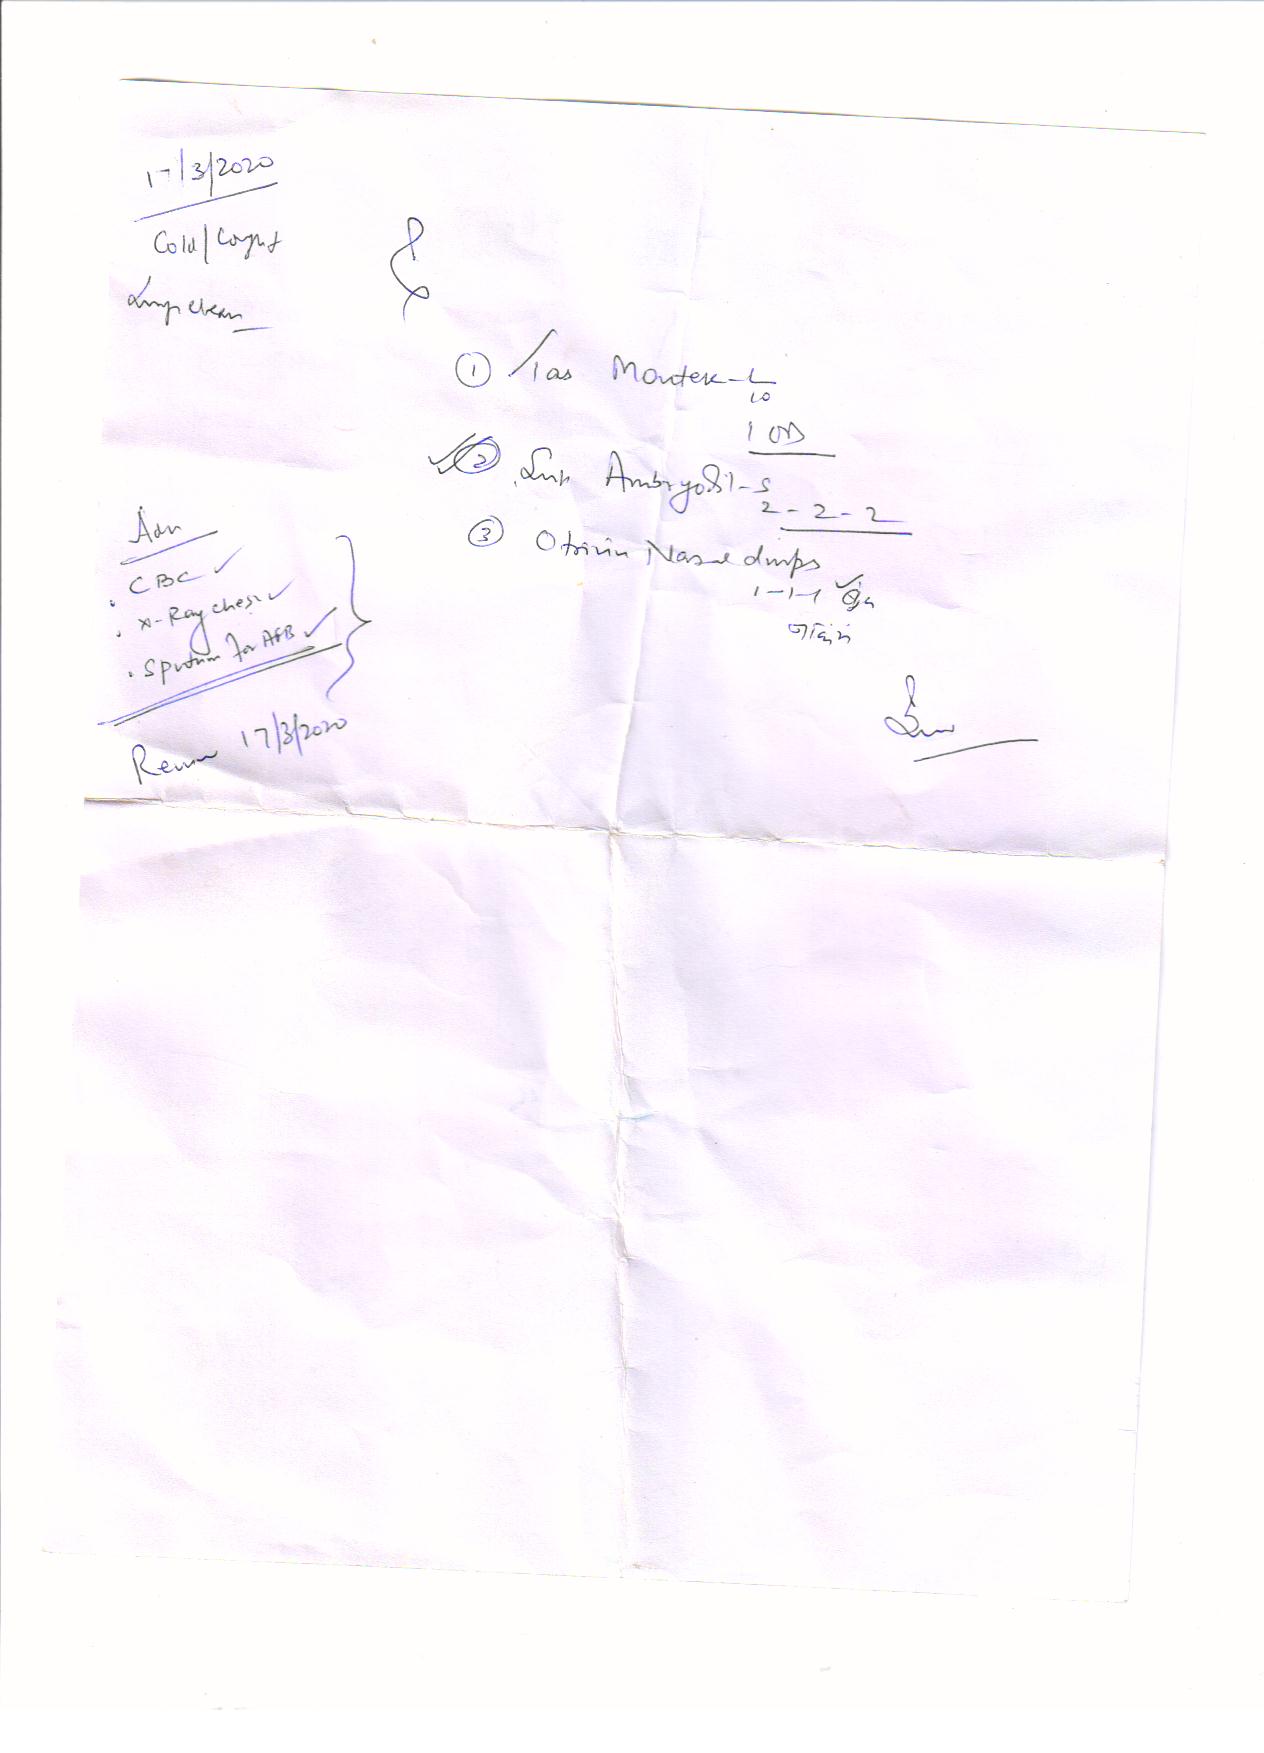 17/3/2020
Cold/Cough
Lungs clear
① Tab Montek-L
10
1 OD
② Syp Ambryodil-S
2-2-2
③ Otrivin Nasal drops
1-1-1
नाकात
Adv
. CBC ✓
. X-Ray chest ✓
. Sputum for AFB ✓
Review 17/3/2020